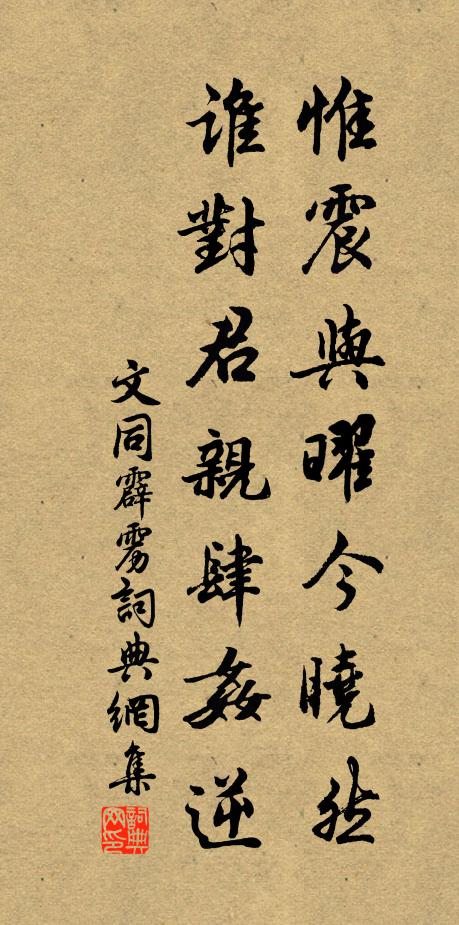 惟震與曜今曉然
誰對君親肆姦逆
文同霹雳詞典網集
詞典網印